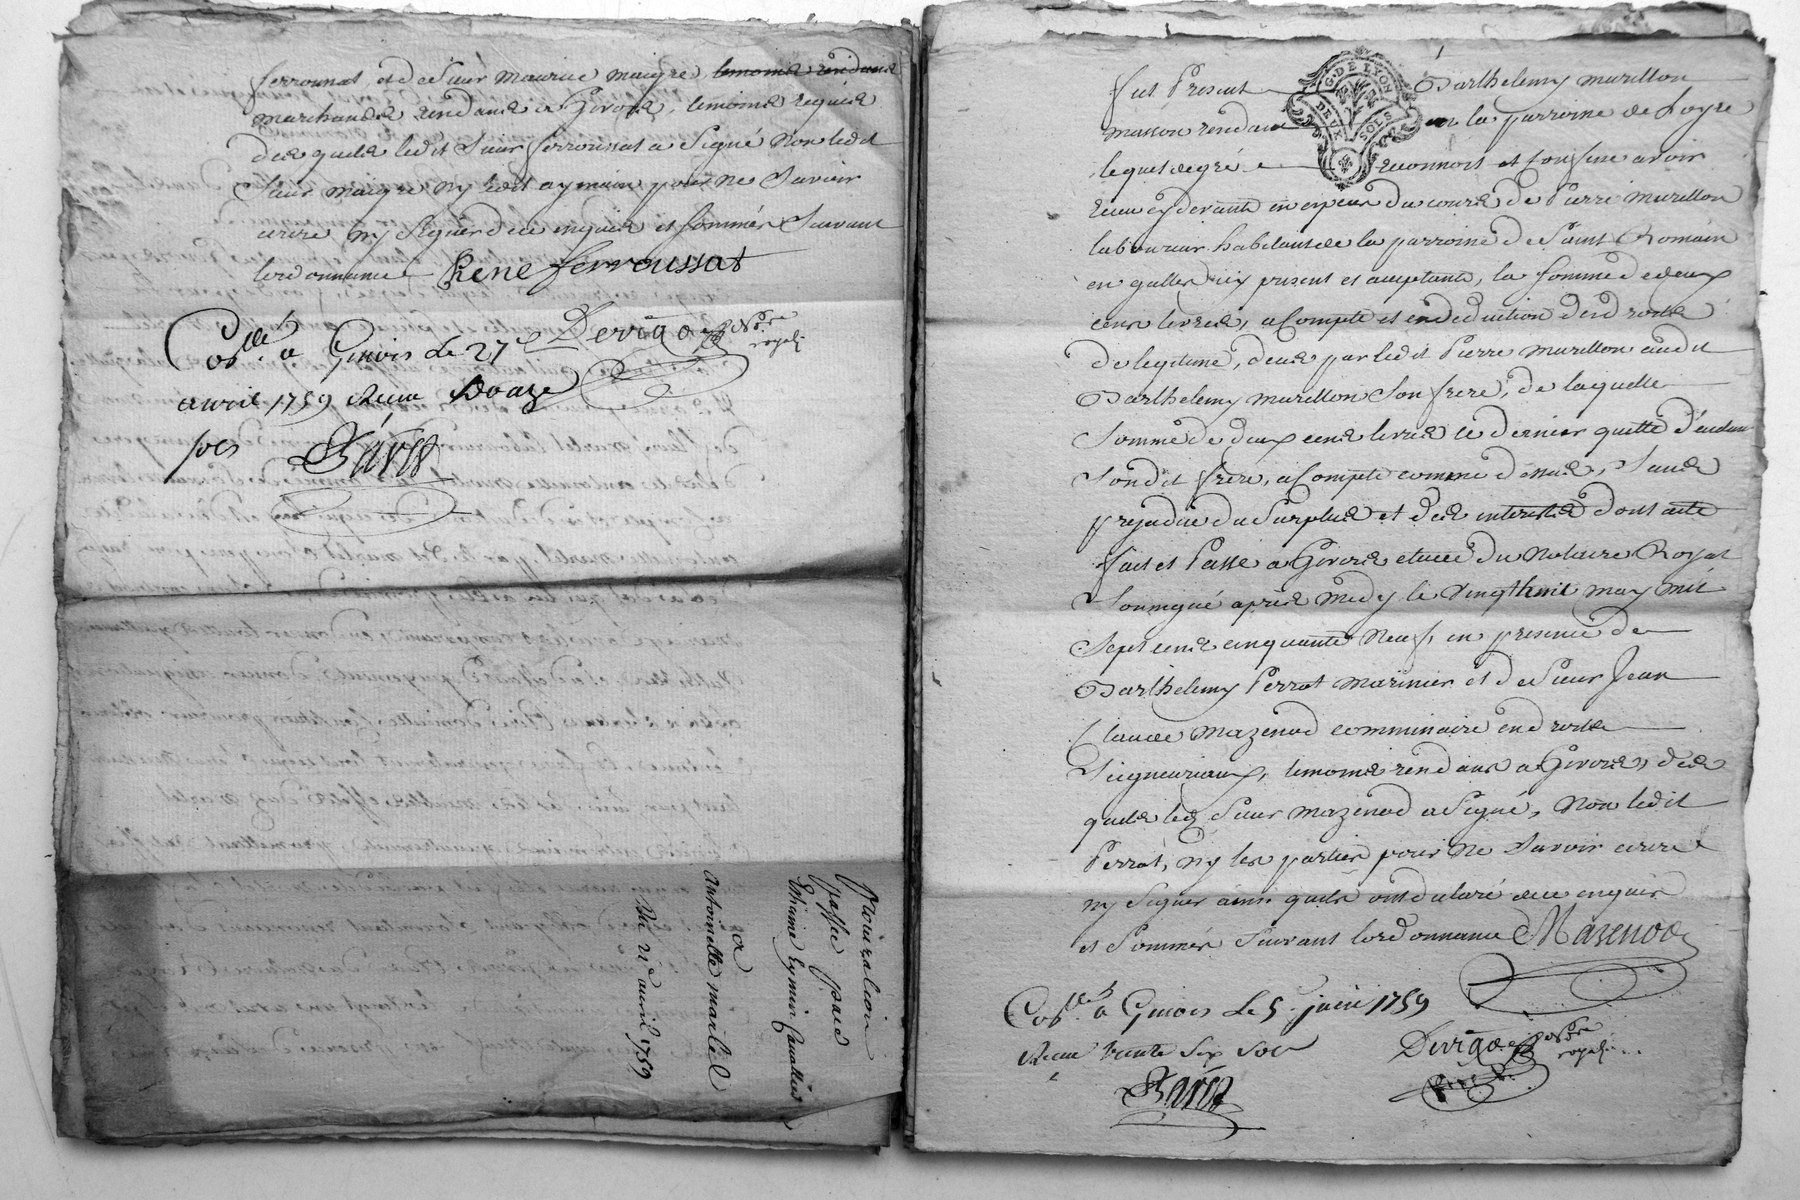 ferroussat, et de Sieur Maurice maigre temoins residans
marchands residans a Givors, temoins requis
des quels ledit Sieur ferroussat a Signé Non ledit
Sieur maigre ny ledit aymain pour ne Savoir
ecrire ny Signer de ce enquis et sommés Suivant
lordonnance
Rene ferroussat
Derigo Nore royal
Collé a Givois le 27e
avril 1759 Recu Douze
sols
procuration
passée par
Antoinette martel
Du 21e avril 1759
G. DE LYON
DEUX SOLS
fut Present Barthelemy murillon
masson residant en la parroisse de Loyre
lequel de gré reconnoit et confesse avoir
receu cy devant en especes du cours de Pierre murillon
laboureur habitant de la parroisse de Saint Romain
en galles icy present et acceptant, la somme de deux
cens livres, a Compte et en deduction des droits
de legitime, deus par ledit Pierre murillon audit
Barthelemy murillon Son frere, de laquelle
Somme de deux cens livres ce dernier quitte d'autant
Sondit frere, a Compte comme dessus, Sans
prejudice du Surplus et des interests dont acte
fait et Passé a Givors etude du Notaire Royal
Soussigné apres Midy le vingthuit may mil
Sept cens cinquante Neuf, en presence de
Barthelemy Perrot marinier et de Sieur Jean
Claude Mazenod commissaire en droits
Seigneuriaux, temoins residans a Givors, des
quels led Sieur Mazenod a Signé, Non ledit
Perrot, ny les parties pour ne Savoir ecrire
ny Signer ainsi quils ont declaré de ce enquis
et Sommés Suivant lordonnance Mazenod
Collé a Givois le 5. juin 1759
Recu trente Six Sols
Derigo Nore royal